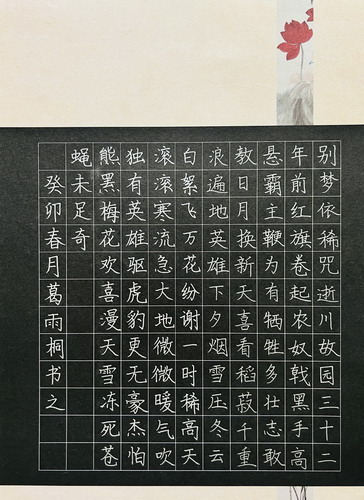 别梦依稀咒逝川故园三十二
年前红旗卷起农奴戟黑手高
悬霸主鞭为有牺牲多壮志敢
教日月换新天喜看稻菽千重
浪遍地英雄下夕烟雪压冬云
白絮飞万花纷谢一时稀高天
滚滚寒流急大地微微暖气吹
独有英雄驱虎豹更无豪杰怕
熊黑梅花欢喜漫天雪冻死苍
蝇未足奇
癸卯春月葛雨桐书之